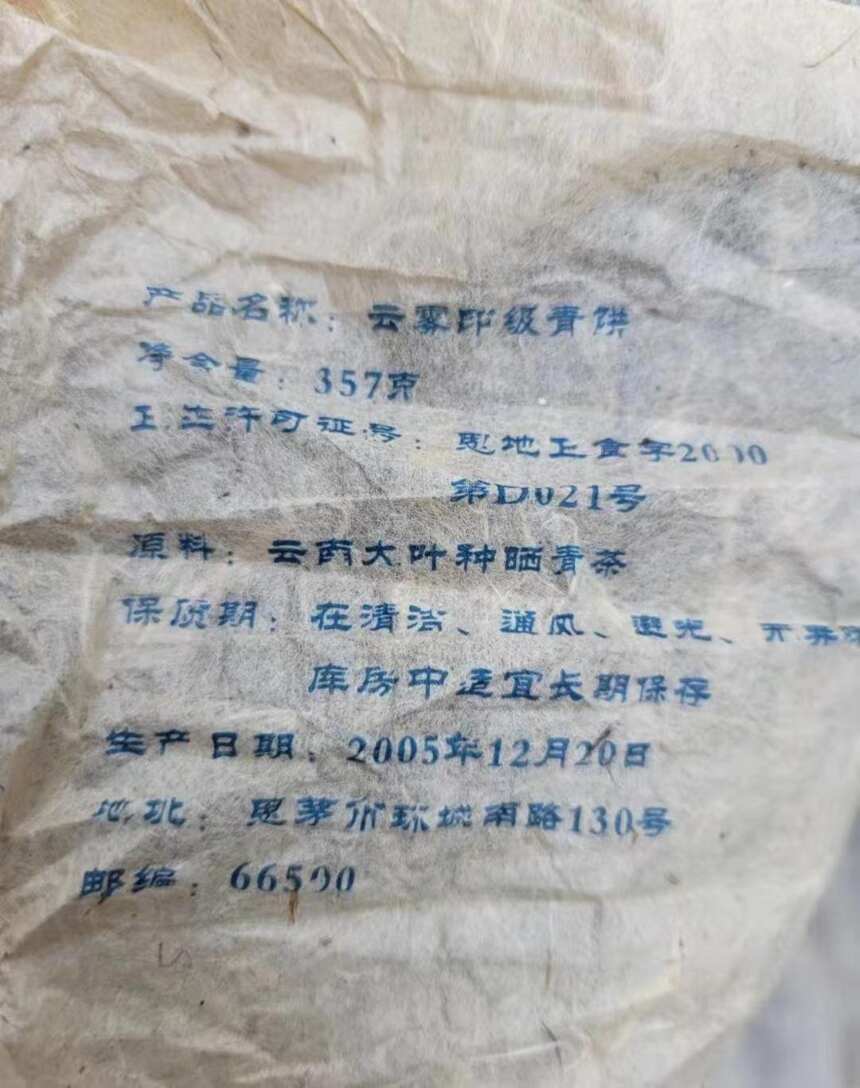 产品名称：云雾印级青饼
净含量：357克
卫生许可证号：思地卫食字2000
第D021号
原料：云南大叶种晒青茶
保质期：在清洁、通风、避光、无异味
库房中适宜长期保存
生产日期：2005年12月20日
地址：思茅市环城南路130号
邮编：66500